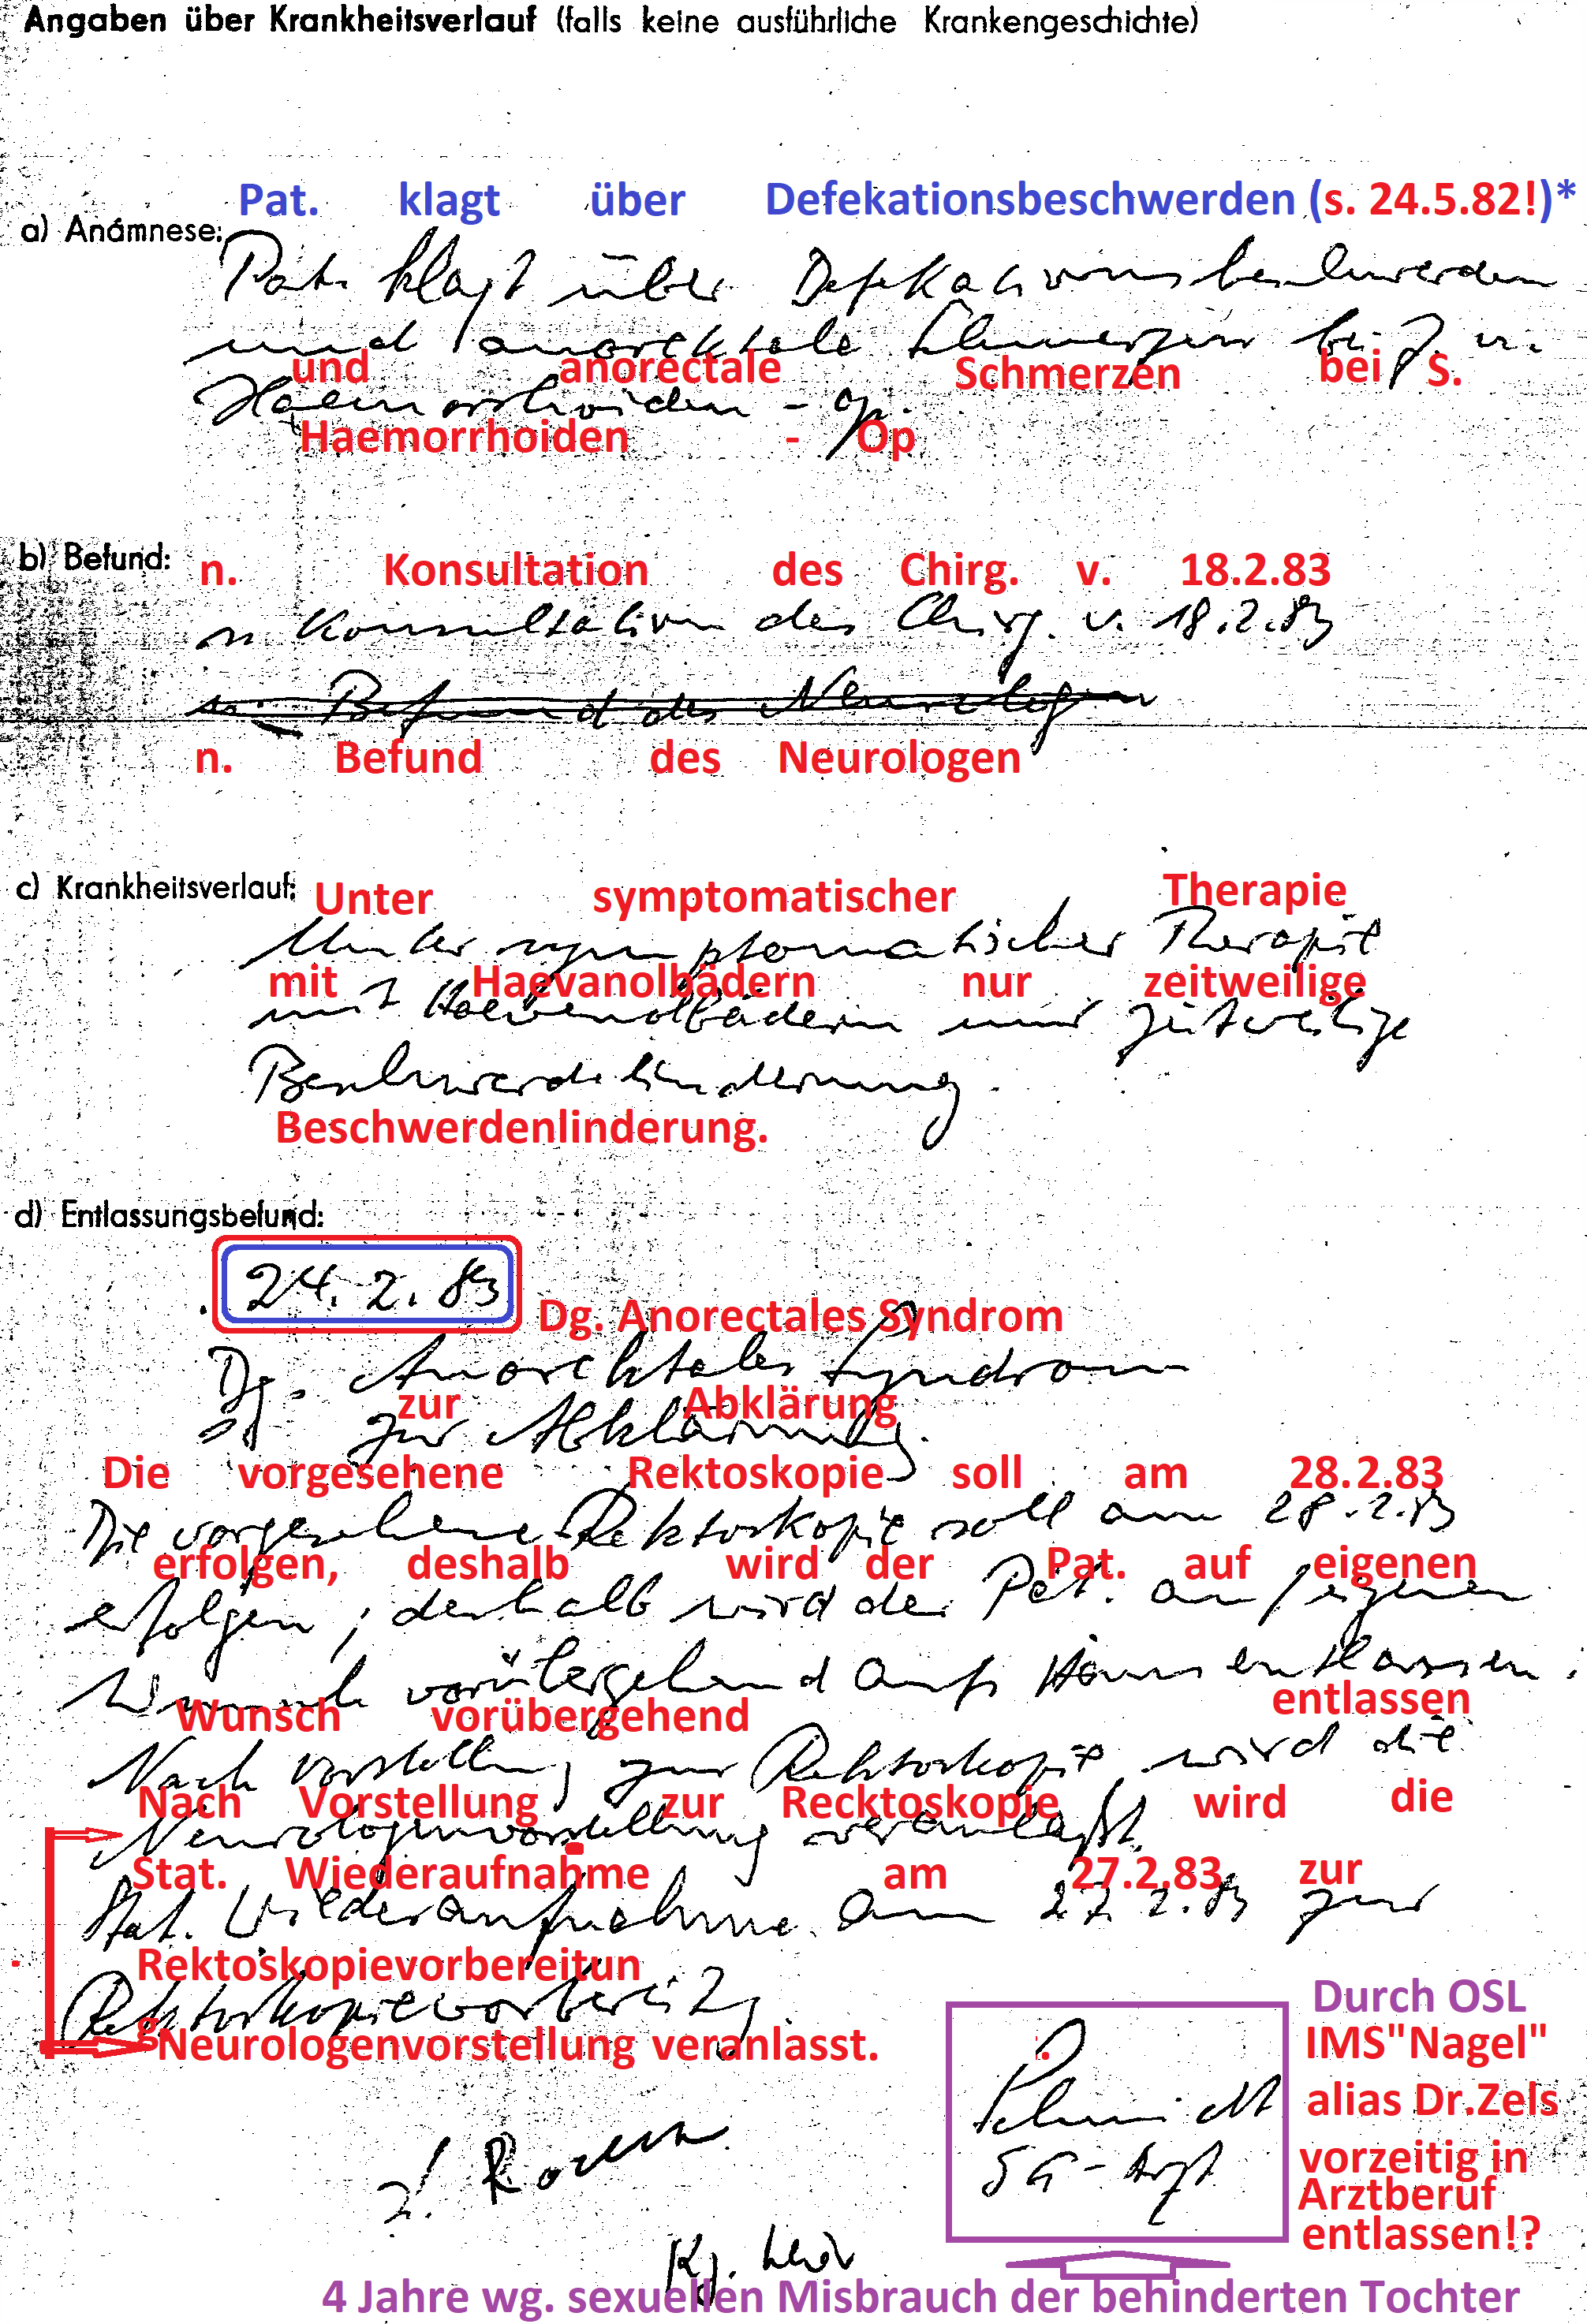 Angaben über Krankheitsverlauf (falls keine ausführliche Krankengeschichte)
Pat. klagt über Defekationsbeschwerden (s. 24.5.82!)*
a) Anamnese:
Pat. klagt über Defekationsbeschwerden
und anorektale Schmerzen bei Z. n.
und anorectale Schmerzen bei S.
Haemorrhoiden - Op.
Haemorrhoiden - Op
b) Befund:
n. Konsultation des Chirg. v. 18.2.83
n Konsultation des Chirg. v. 18.2.83
n. Befund des Neurologen
n. Befund des Neurologen
c) Krankheitsverlauf:
Unter symptomatischer Therapie
Unter symptomatischer Therapie
mit Haevanolbädern nur zeitweilige
mit Haevenolbädern nur zeitweilige
Beschwerdelinderung.
Beschwerdenlinderung.
d) Entlassungsbefund:
24.2.83
Dg. Anorectales Syndrom
Dg. Anorektales Syndrom
zur Abklärung
zur Abklärung.
Die vorgesehene Rektoskopie soll am 28.2.83
Die vorgesehene Rektoskopie soll am 28.2.83
erfolgen, deshalb wird der Pat. auf eigenen
erfolgen, deshalb wird der Pat. auf eigenen
Wunsch vorübergehend aufs Haus entlassen.
Wunsch vorübergehend entlassen
Nach Vorstellung zur Rektoskopie wird die
Nach Vorstellung zur Recktoskopie wird die
Neurologenvorstellung veranlaßt.
Stat. Wiederaufnahme am 27.2.83 zur
Stat. Wiederaufnahme am 27.2.83 zur
Rektoskopievorbereitun
Rektoskopievorbereitg.
g.
Neurologenvorstellung veranlasst.
Schmidt
SG-Arzt
Durch OSL
IMS"Nagel"
alias Dr.Zels
vorzeitig in
Arztberuf
entlassen!?
4 Jahre wg. sexuellen Misbrauch der behinderten Tochter